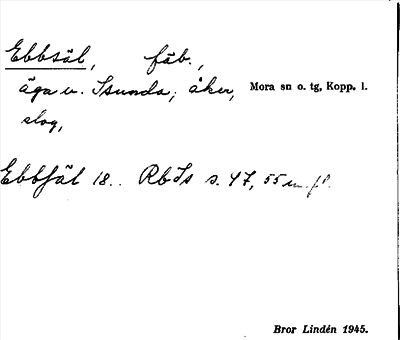 Ebbsäl, fäb.,
äga u. Isunda; åker, Mora sn o. tg, Kopp. l.
slog,
Ebbsäl 18.. RbIs s. 47, 55 m. fl.
Bror Lindén 1945.